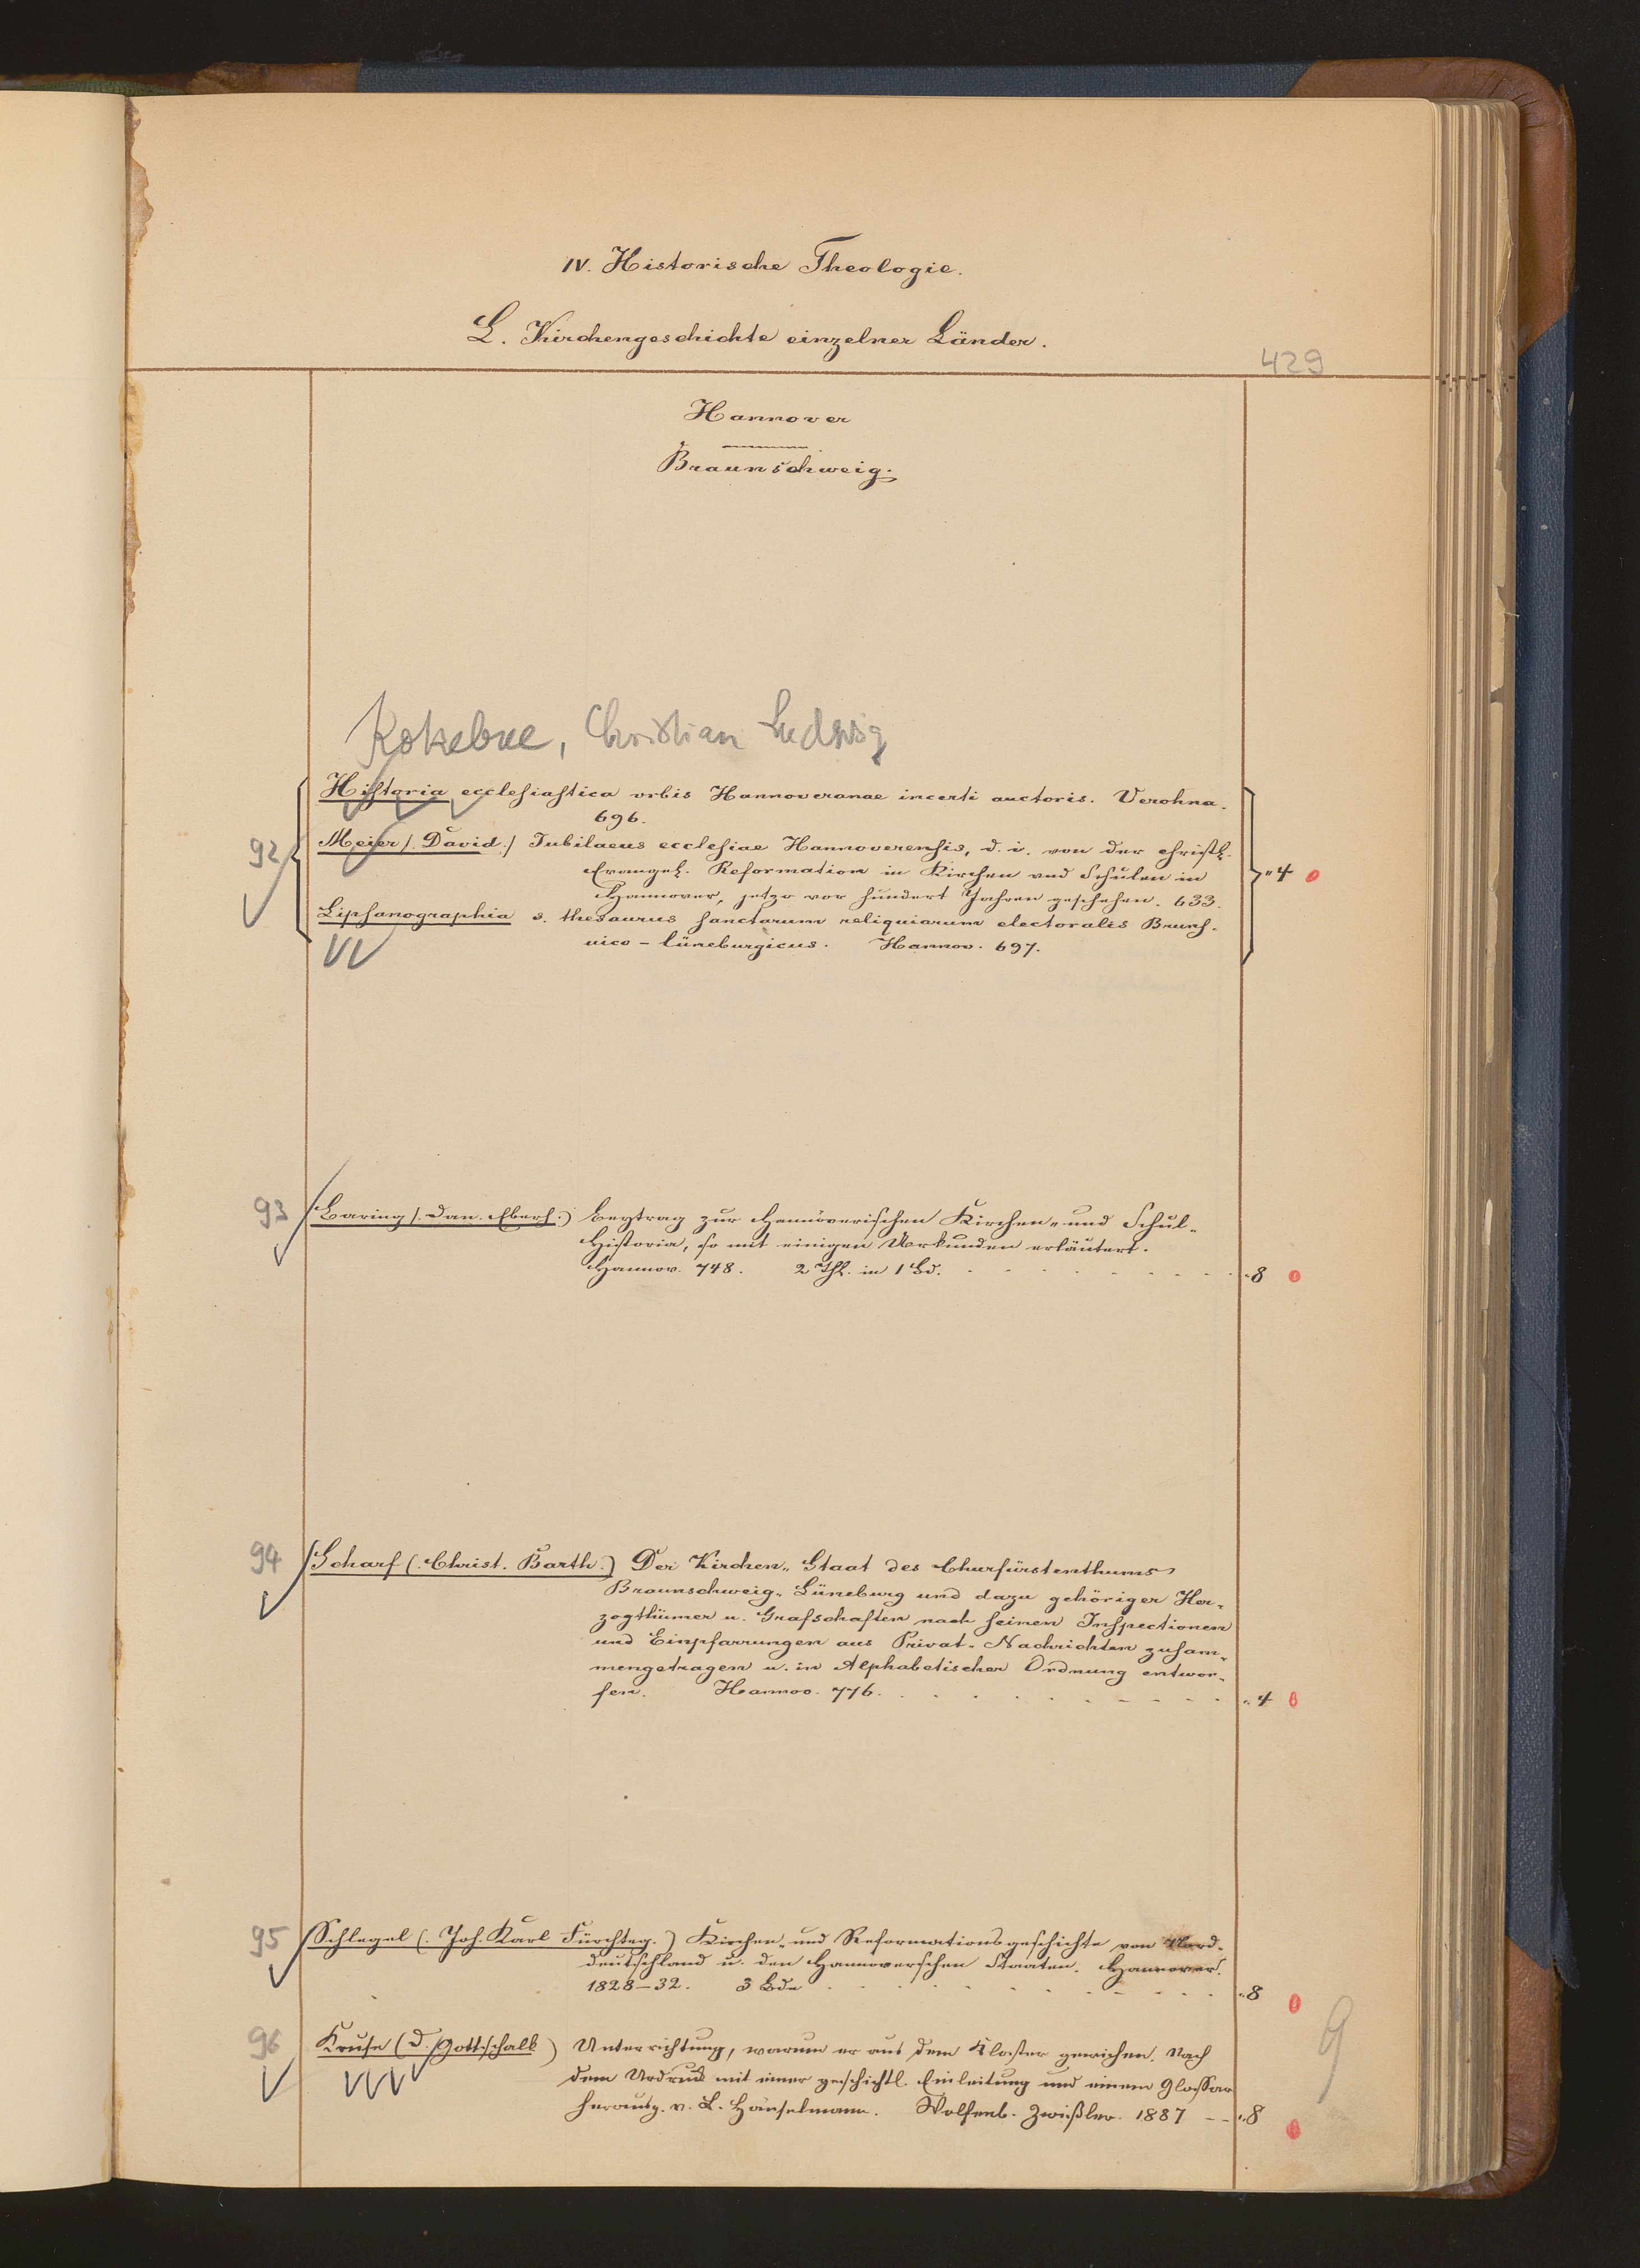 IV. Historische Theologie.
L. Kirchengeschichte einzelner Länder.
429
Hannover
Braunschweig.
Kokebue, Christian Ludwig
Hiſtoria eccleſiaſtica vrbis Hannoveranae incerti auctoris. Verohna.
696.
92 Meier (. David.) Jubilaeus eccleſiae Hannoverenſis, d. i. von der chriſtl.
Evangel. Reformation in Kirchen vnd Schulen in
Hannover, jetzo vor hundert Jahren geschehen. 633. "4 0
Lipſanographia s. thesaurus ſanctarum reliquiarum electoralis Brunſ-
vico-lüneburgicus. Hannov. 697.
93 Baring (. Dan. Eberh.) Beytrag zur Hannöverischen Kirchen- und Schul-
Historia, so mit einigen Urkunden erläutert.
Hannov. 748. 2 Thl. in 1 Bd. "8 0
94 Scharf (. Christ. Barth.) Der Kirchen-Staat des Churfürstenthums
Braunschweig-Lüneburg und dazu gehöriger Her-
zogthümer u. Grafschaften nach ſeinen Inſpectionen
und Einpfarrungen aus Privat-Nachrichten zuſam-
mengetragen u. in Alphabetischer Ordnung entwor-
fen. Hannov. 776. "4 0
95 Schlegel (. Joh. Karl Fürchteg.) Kirchen- und Reformationsgeschichte von Nord-
deutschland u. den Hannoverschen Staaten. Hannover.
1828-32. 3 Bde "8 0
96 Kruse (D. Gottschalk) Unterrichtung, warum er aus dem Kloster gewichen. Nach
dem Urdruck mit einer geschichtl. Einleitung und einem Glossar
herausg. v. L. Hänselmann. Wolfenb. Zwißler. 1887 -- "8 0
9